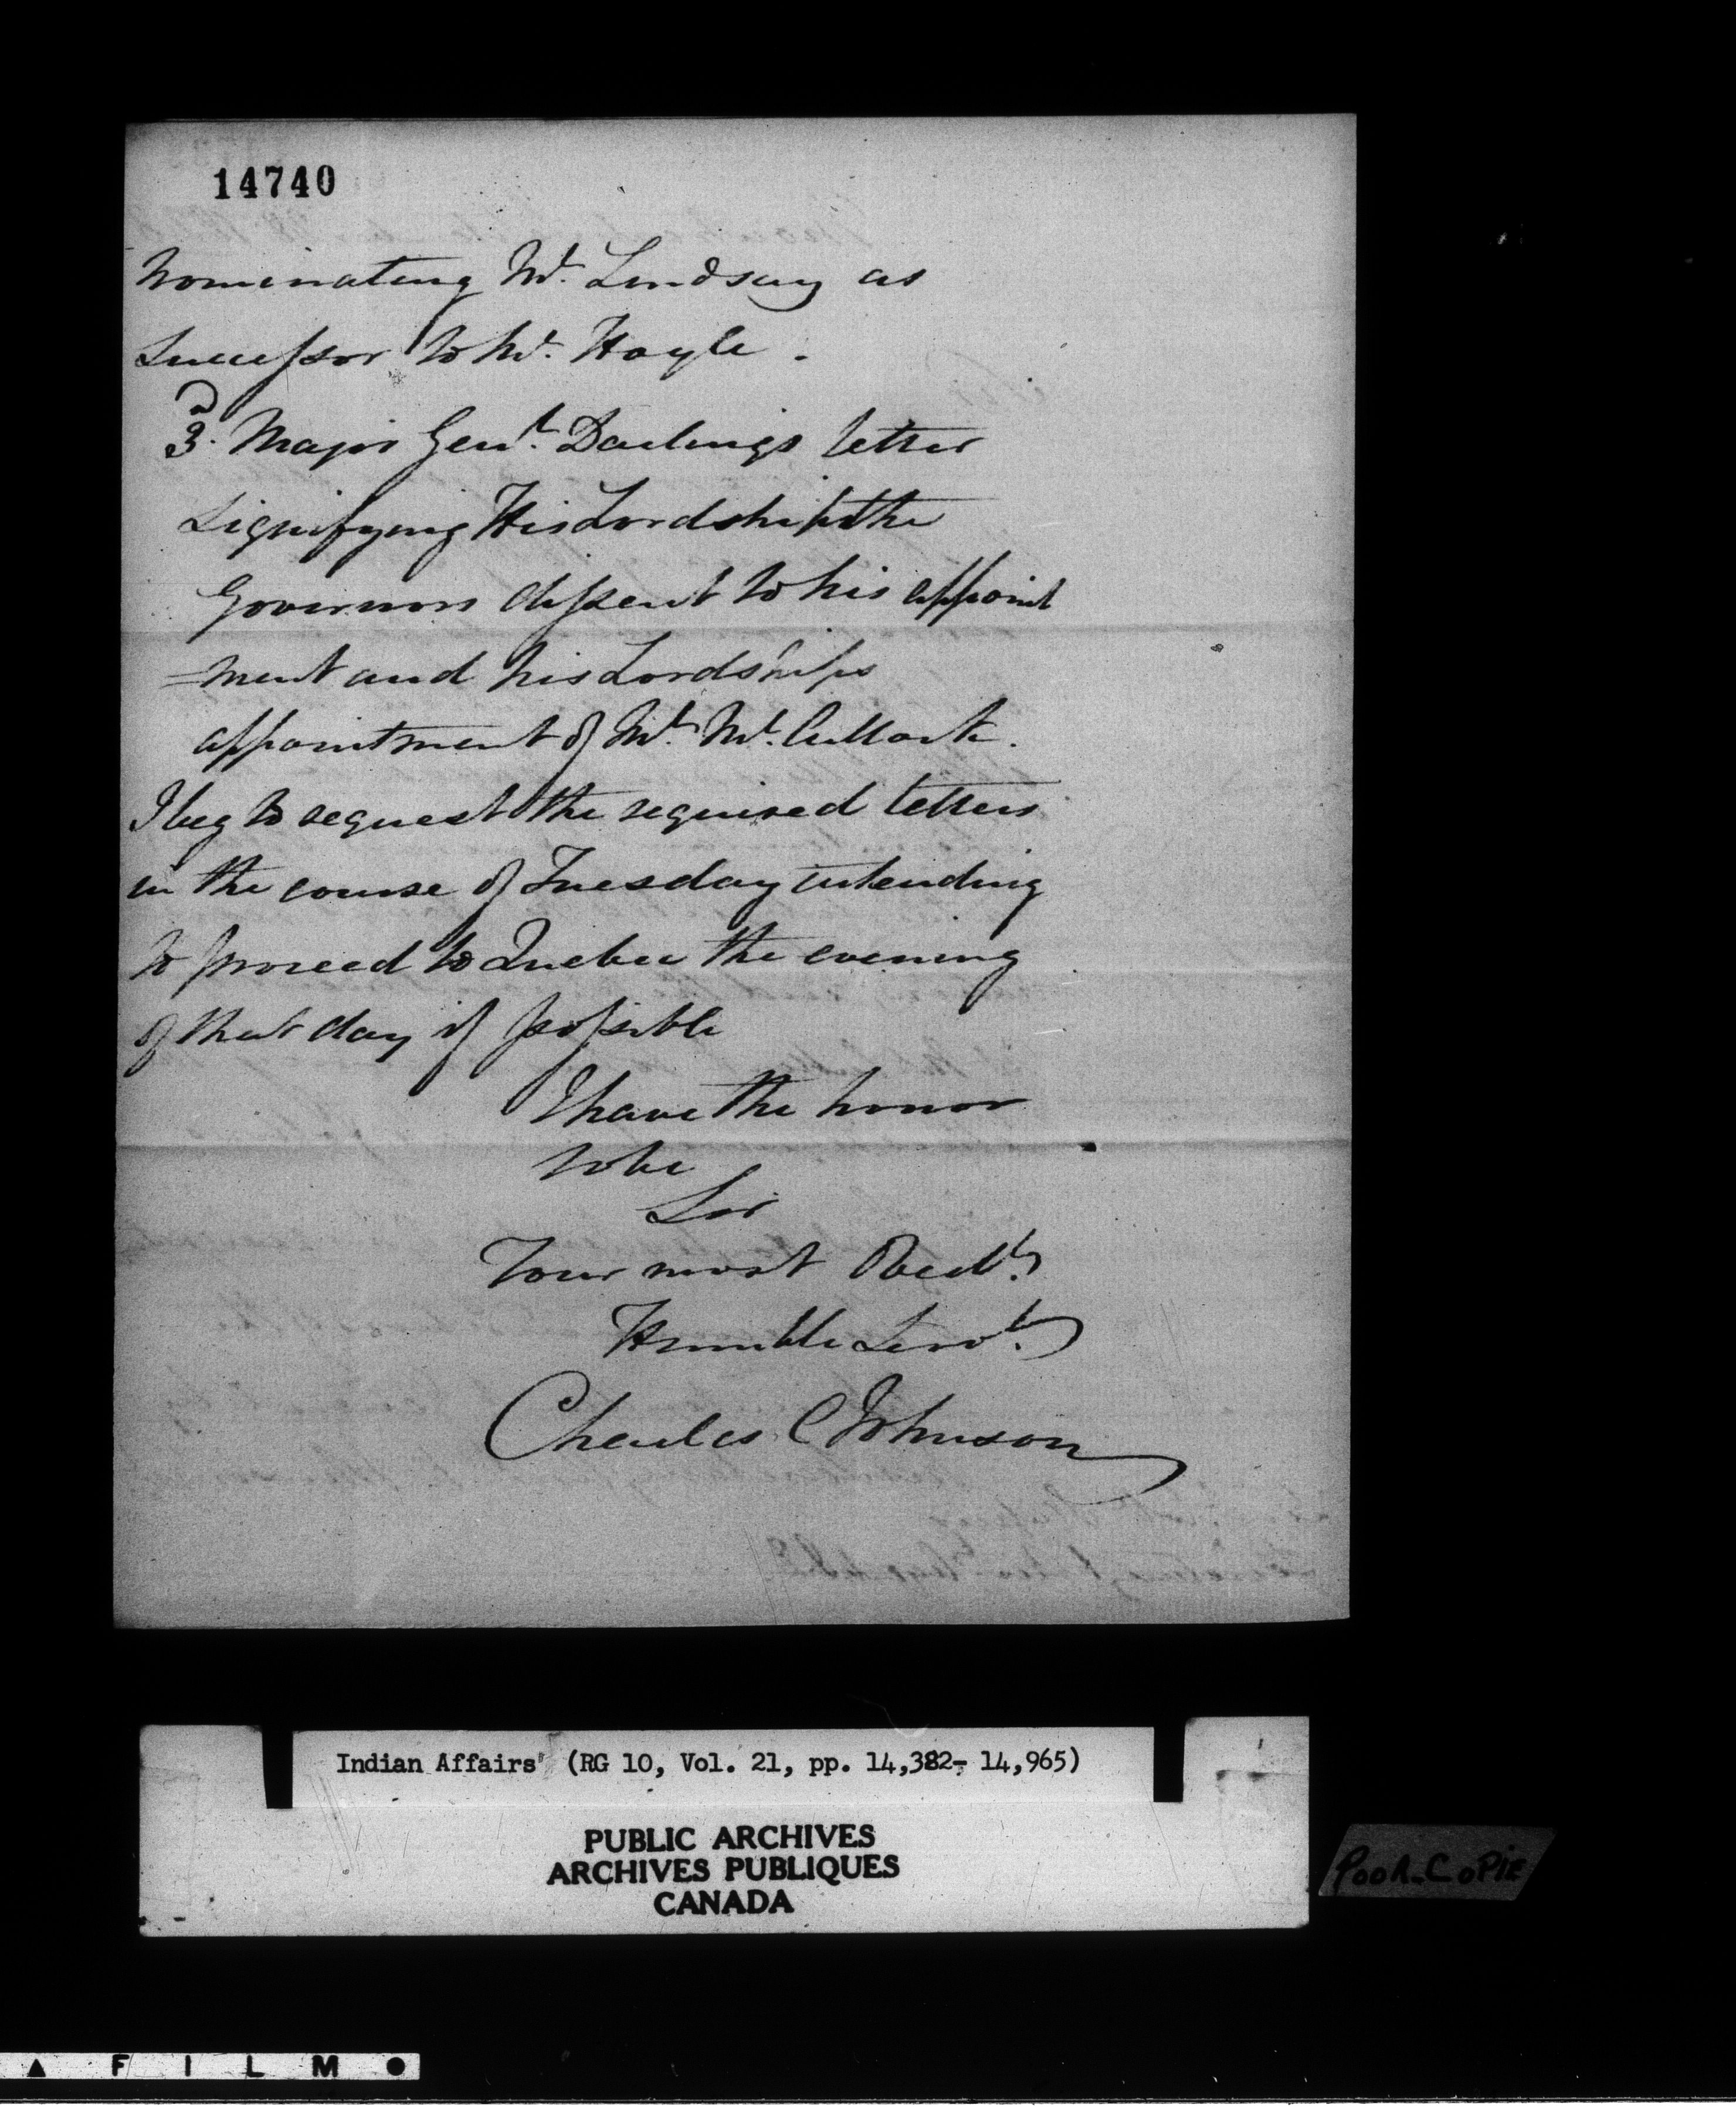 14740
Nominating Mr. Lindsay as
Successor to Mr. Hoyle.
3d. Major Genl. Darlings letter
Signifying His Lordship the
Governors dissent to his appoint
=ment and his Lordships
appointment of Mr. Mc.Cullock.
I beg to request the required letters
in the course of Tuesday intending
to proceed to Quebec the evening
of that day if possible
I have the honor
to be
Sir
Your most Obedt.
Humble Servt.
Charles C Johnson
Indian Affairs (RG 10, Vol. 21, pp. 14,382- 14,965)
PUBLIC ARCHIVES
ARCHIVES PUBLIQUES
CANADA
POOR-COPIE
FILM